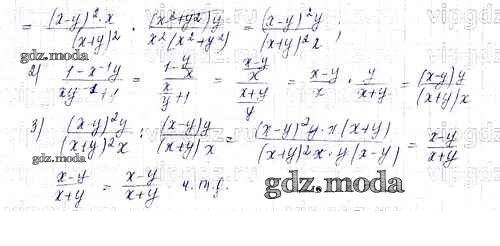 = (x-y)²·x / (x+y)² · (x²+y²)y / x²(x²+y²) = (x-y)²y / (x+y)²x ;
2) 1-x⁻¹y / xy⁻¹+1 = (1-y/x) / (x/y+1) = ((x-y)/x) / ((x+y)/y) = (x-y)/x · y/(x+y) = (x-y)y / (x+y)x
3) (x-y)²y / (x+y)²x : (x-y)y / (x+y)x = (x-y)²y·x(x+y) / (x+y)²x·y(x-y) = (x-y)/(x+y)
(x-y)/(x+y) = (x-y)/(x+y) ч.т.д.
gdz.moda
gdz.moda